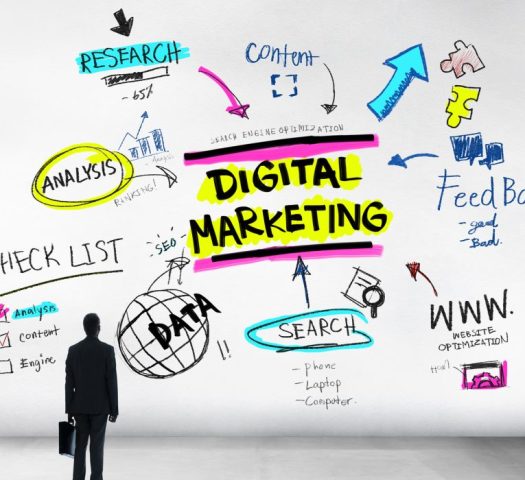 RESEARCH
-65%
CONTENT
SEARCH ENGINE OPTIMIZATION
DIGITAL
MARKETING
ANALYSIS
Analysis
RANKING!
SEO
FeedBa
- good
- Bad.
HECK LIST
Analysis
Content
Engine
DATA
!!
SEARCH
- Phone
- Laptop
- Computer.
WWW.
WEBSITE
OPTIMIZATION